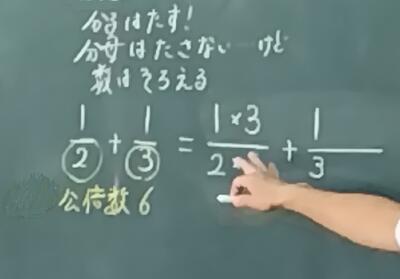 分子はたす!
分母はたさないけど
数はそろえる
1/2 + 1/3 = 1×3/2 + 1/3
公倍数6